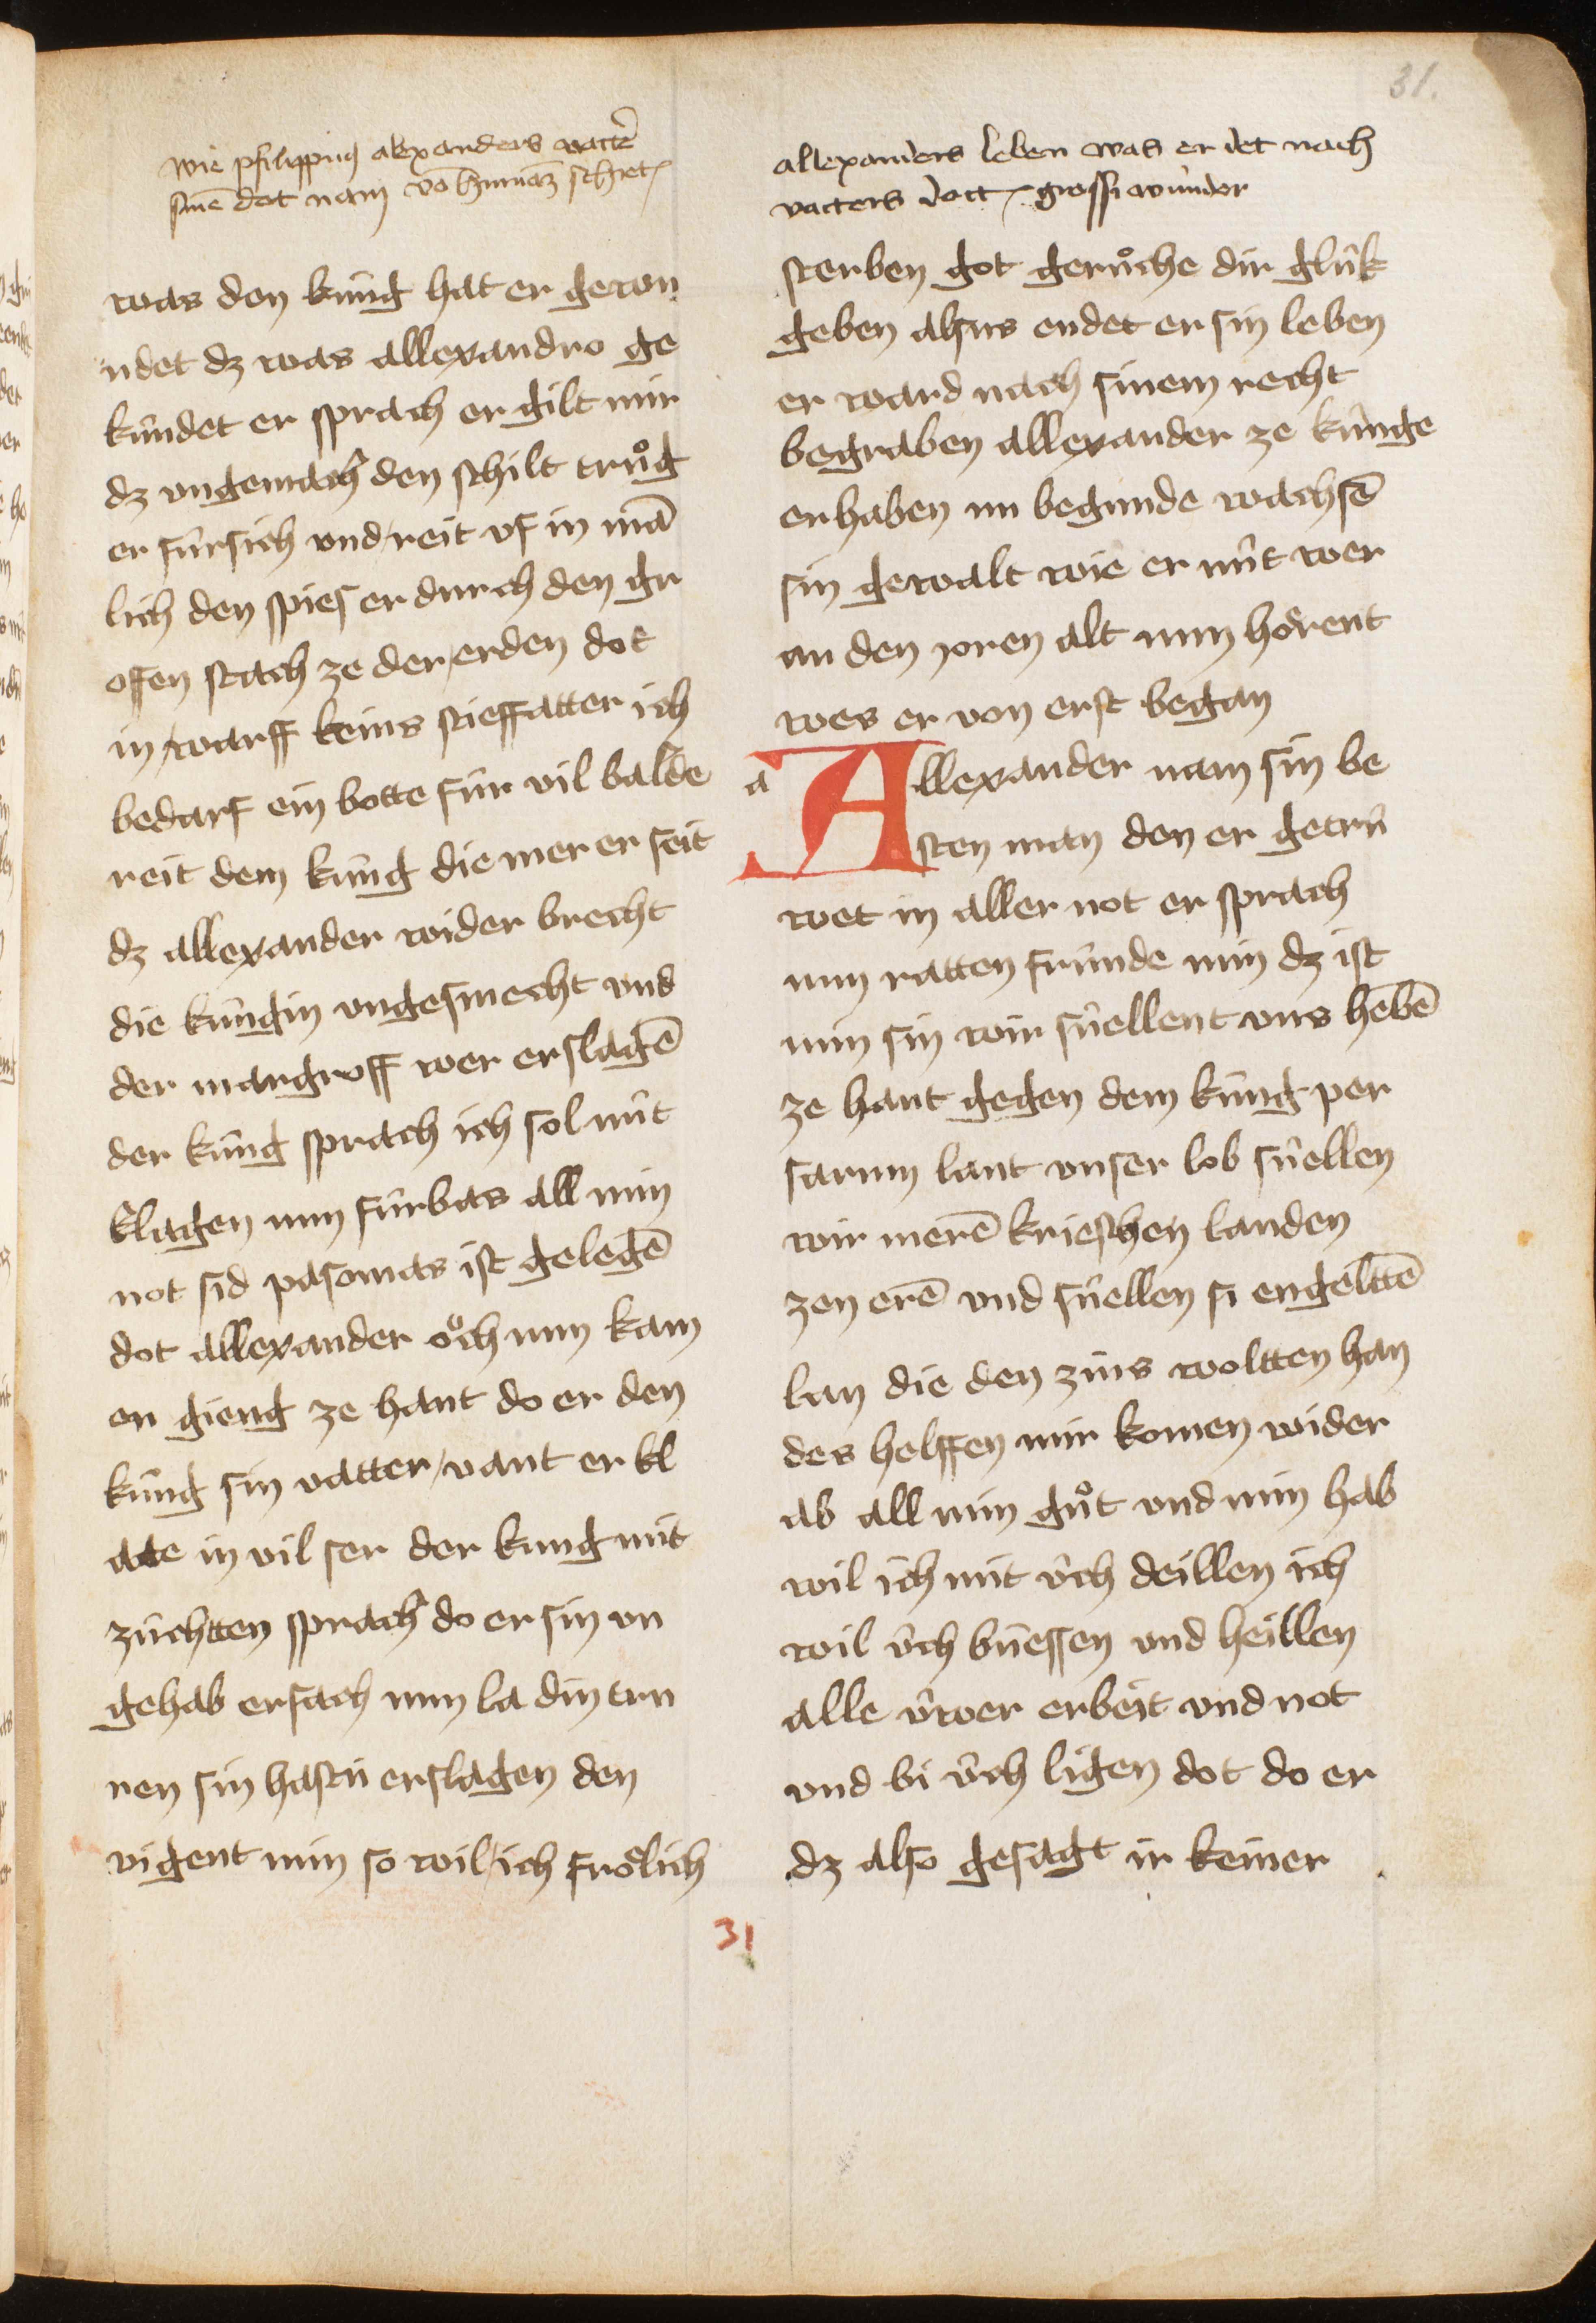 31.
wie pfilippus alexanders vatter̄
sinē dot nam vō
was den kúng hat er gewu
ndet dz was allexandro ge
kúndet er sprach er gilt mir
dz vngemach den schilt truͦg
er fúrsich vnd reit vf in mā
lich den spies er durch den gr
offen stach ze der erden dot
in warff keins stieffatter ich
bedarf ein botte fúr vil balde
reit dem kúng die mer er seit
dz allexander wider brecht
die kúngin vngesmecht vnd
der margroff wer erslagē
der kúng sprach ich sol nút
klagen nun fúrbas all min
not sid pasomas ist gelegē
dot allexander oͧch nun kam
en gieng ze hant do er den
kúng sin vatter vant er kl
atte in vil ser der kung mit
zúchtten sprach do er sin vn
gehab ersach nun la din tru
ren sin hastu erslagen den
vigent min so wil ich frölich
allexanders leben was er det nach
vatters dott grossi wunder
sterben got geruͦche dir glúk
geben alsus endet er sin leben
er ward nach sinem recht
begraben allexander ze kúnge
erhaben nu begunde wachsē
sin gewalt wie er nút wer
an den joren alt nun hörent
wes er von erst began
a
Allexander nam sin be
sten man den er getrú
wet in aller not er sprach
nun ratten frúnde min dz ist
min sin wir súellent vns hebē
ze hant gegen dem kúng per
sarum lant vnser lob súellen
wir merē krieschen landen
zen erē vnd súellen si engelttē
lan die den zins woltten han
des helffen mir komen wider
ab all min guͦt vnd min hab
wil ich mit v́ch deillen ich
wil v́ch búessen vnd heillen
alle v́wer erbeit vnd not
vnd bi v́ch ligen dot do er
dz also gesagt ir keiner
31